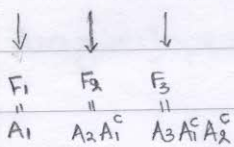 ↓ ↓ ↓
F₁ F₂ F₃
= = =
A₁ A₂A₁ᶜ A₃A₁ᶜA₂ᶜ